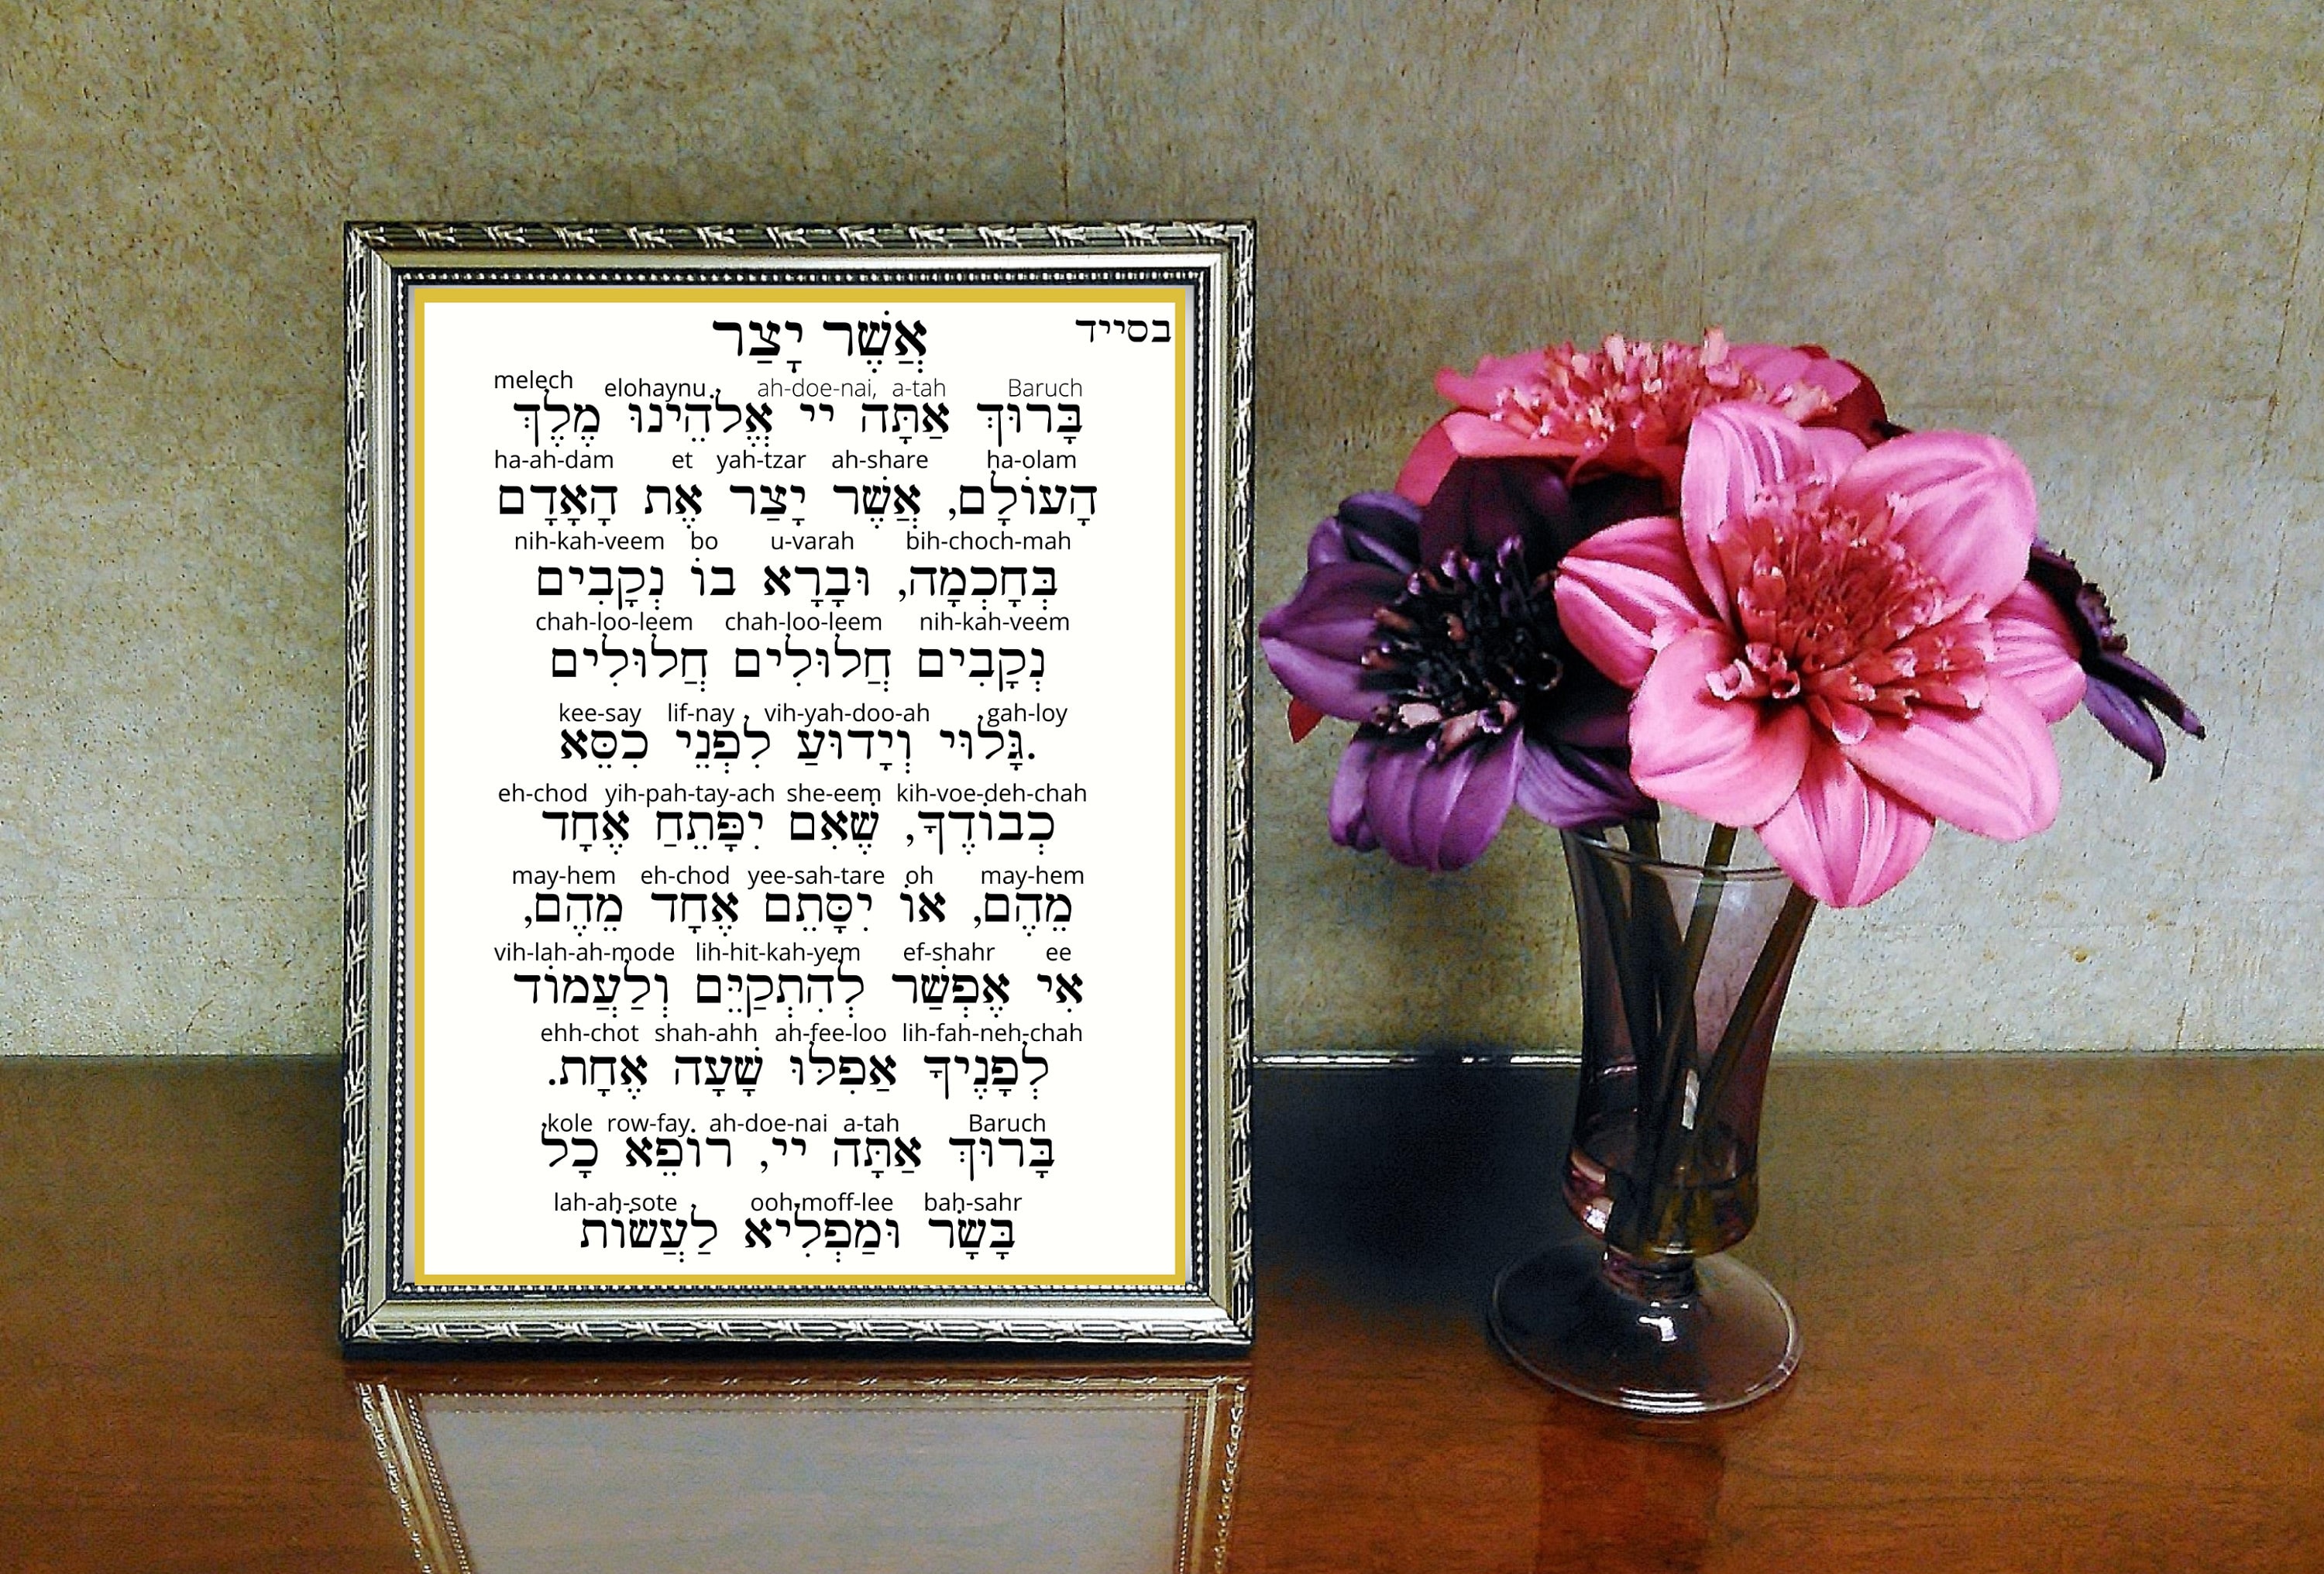 בסייד
אֲשֶׁר יָצַר
melech elohaynu ah-doe-nai, a-tah Baruch
בָּרוּךְ אַתָּה יי אֱלֹהֵינוּ מֶלֶךְ
ha-ah-dam et yah-tzar ah-share ha-olam
הָעוֹלָם, אֲשֶׁר יָצַר אֶת הָאָדָם
nih-kah-veem bo u-varah bih-choch-mah
בְּחָכְמָה, וּבָרָא בוֹ נְקָבִים
chah-loo-leem chah-loo-leem nih-kah-veem
נְקָבִים חֲלוּלִים חֲלוּלִים
kee-say lif-nay vih-yah-doo-ah gah-loy
.גָּלוּי וְיָדוּעַ לִפְנֵי כִסֵּא
eh-chod yih-pah-tay-ach she-eem kih-voe-deh-chah
כְבוֹדֶךָ, שֶׁאִם יִפָּתֵחַ אֶחָד
may-hem eh-chod yee-sah-tare oh may-hem
מֵהֶם, אוֹ יִסָּתֵם אֶחָד מֵהֶם,
vih-lah-ah-mode lih-hit-kah-yem ef-shahr ee
אִי אֶפְשַׁר לְהִתְקַיֵּם וְלַעֲמוֹד
ehh-chot shah-ahh ah-fee-loo lih-fah-neh-chah
לְפָנֶיךָ אַפִלּוּ שָׁעָה אֶחָת.
kole row-fay ah-doe-nai a-tah Baruch
בָּרוּךְ אַתָּה יי, רוֹפֵא כָל
lah-ah-sote ooh-moff-lee bah-sahr
בָּשָׂר וּמַפְלִיא לַעֲשׂוֹת